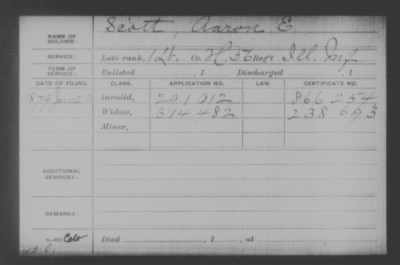 NAME OF SOLDIER: Scott, Aaron E.
SERVICE: Late rank, 1 Lt. Co. H 56 Reg't Ill. Inf
TERM OF SERVICE: Enlisted , 1 Discharged , 1
DATE OF FILING. CLASS. APPLICATION NO. LAW. CERTIFICATE NO.
1879 Invalid, 291012 866254
Widow, 314482 238693
Minor,
ADDITIONAL SERVICES:
REMARKS:
Died , 1 , at